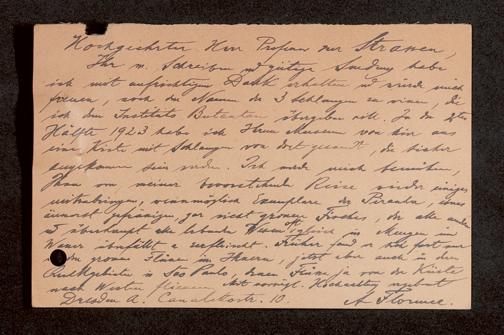 Hochgeehrter Herr Professor van Straelen,
Ihr w. Schreiben u. gütige Sendung habe
ich mit aufrichtigem Dank erhalten u. würde mich
freuen, noch die Namen der 3 Schlangen zu die
ich dem Instituto Butantan übergeben will. In der 2ten
Hälfte 1923 habe ich Ihrem Museum von hier aus
eine Kiste mit Schlangen von dort gesandt, die bisher
angekommen sein Ich werde mich bemühen,
Ihnen von meiner bevorstehenden Reise wieder einiges
mitzubringen, womöglich Exemplare der Piranha, eines
äusserst gefrässigen, gar nicht grossen Fisches, der alle andern
u. überhaupt alle lebende Wesen gleich in Mengen im
Wasser überfällt u. zerfleischt. Früher fand er sich fort nur
in den grossen Flüssen im Innern, jetzt aber auch in den
in Sao Paulo, deren Flüsse ja von der Küste
nach Westen fliessen. Hochachtend ergebenst
Dresden A. Canalettostr. 10. A. Florence.